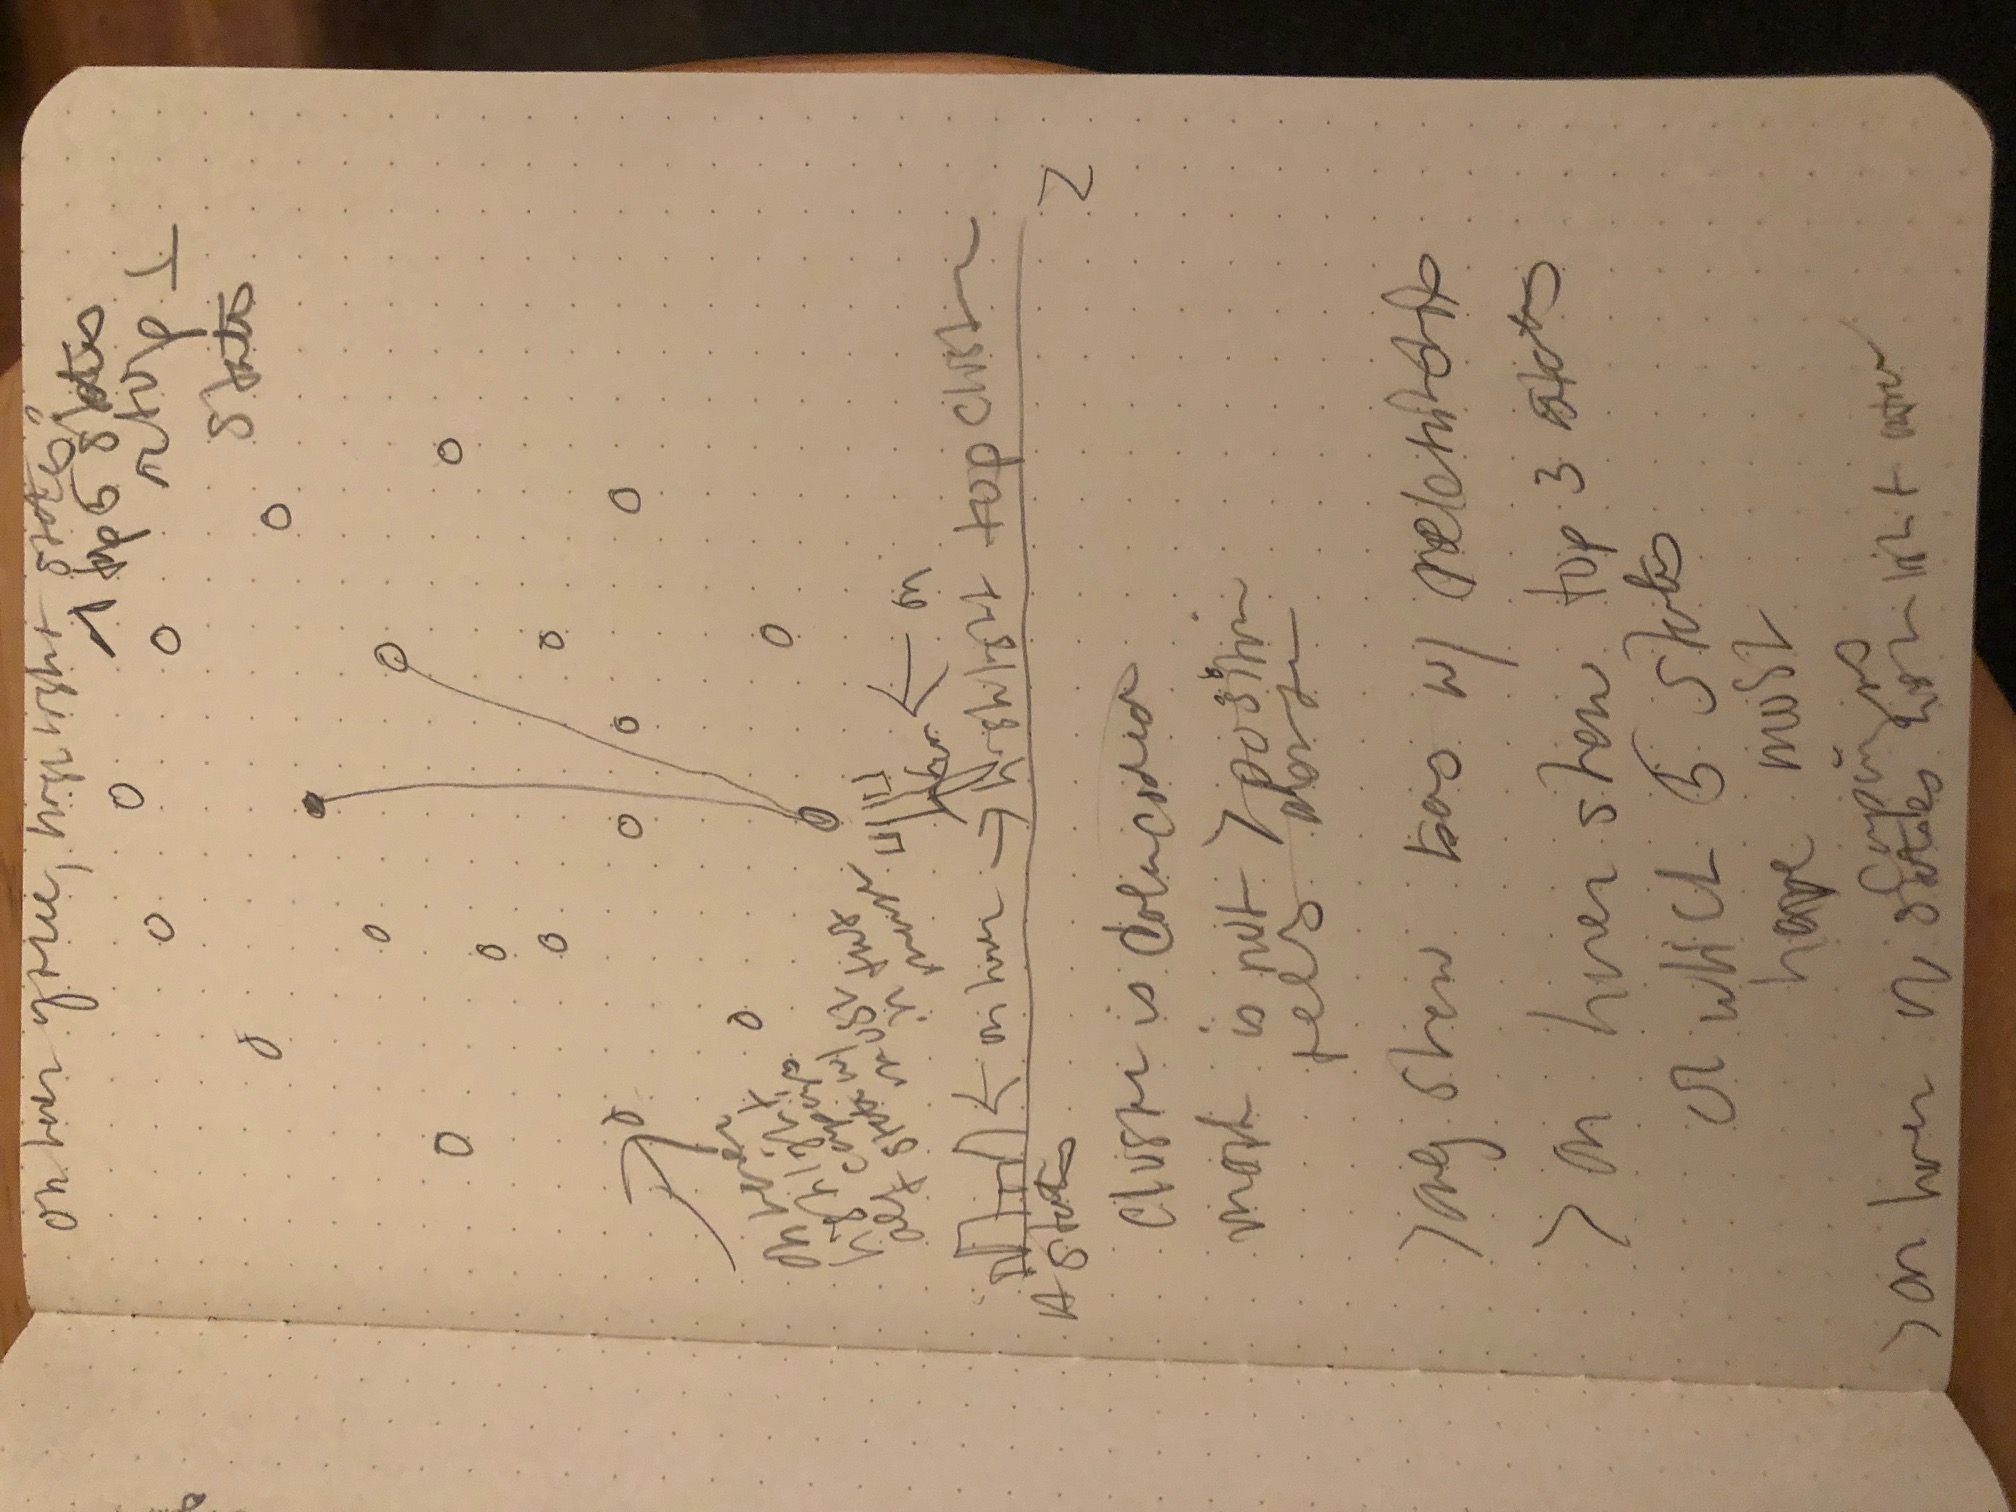 on hover of , highlight states?
top 5 states
top 1
states
on hover
highlight
all campaigns
+ state w/
most
in that
on
← on hover → highlight top cluster
A states
Z
cluster is color coded
is not > position
tells
> show w/ relationships
> on hover show top 3 states
or which 5 states
have most
campaigns
> on hover of states highlight